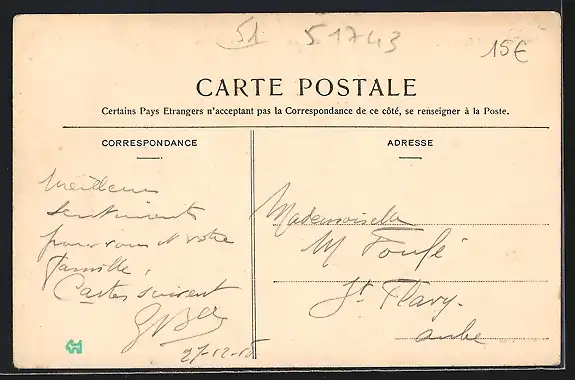 51
51743
15€
CARTE POSTALE
Certains Pays Etrangers n'acceptent pas la Correspondance de ce côté, se renseigner à la Poste.
CORRESPONDANCE
Meilleurs
sentiments
pour vous et votre
famille,
Cartes suivent
ADRESSE
Mademoiselle
M
St Flavy.
aube